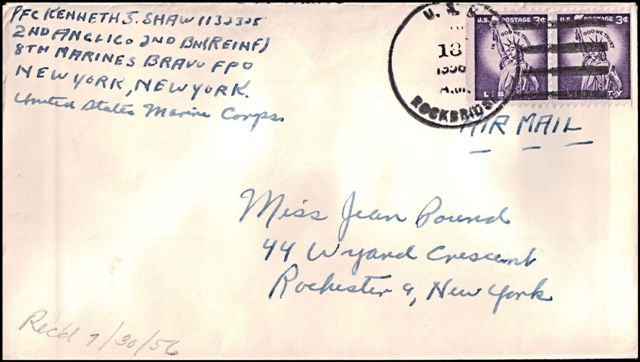 PFC KENNETH S. SHAW 1132325
2ND ANGLICO 2ND BN (REINF)
8TH MARINES BRAVO FPO
NEW YORK, NEW YORK.
United States Marine Corps.
U. S. S.
18
1956
A.M.
ROCKBRIDGE
U.S. POSTAGE 3¢
IN GOD WE TRUST
LIBERTY
U.S. POSTAGE 3¢
IN GOD WE TRUST
LIBERTY
AIR MAIL
Miss Jean Pound
44 Wyand Crescent
Rochester 9, New York
Rec'd 7/30/56